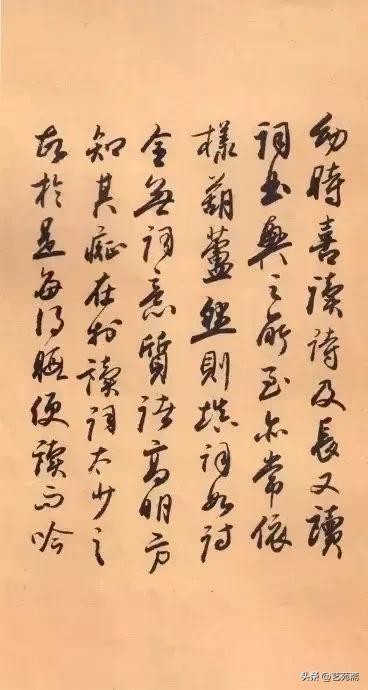 幼時喜讀詩及長又讀
詞書興之所至亦常依
樣葫蘆然則填詞如詩
全無詞意質諸高明方
知其症在於讀詞太少之
故於是每得暇便讀而吟
头条@艺苑斋